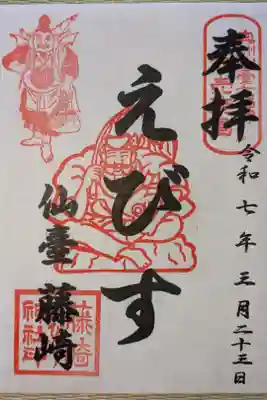 奉拝
令和七年三月二十三日
えびす
仙臺藤崎